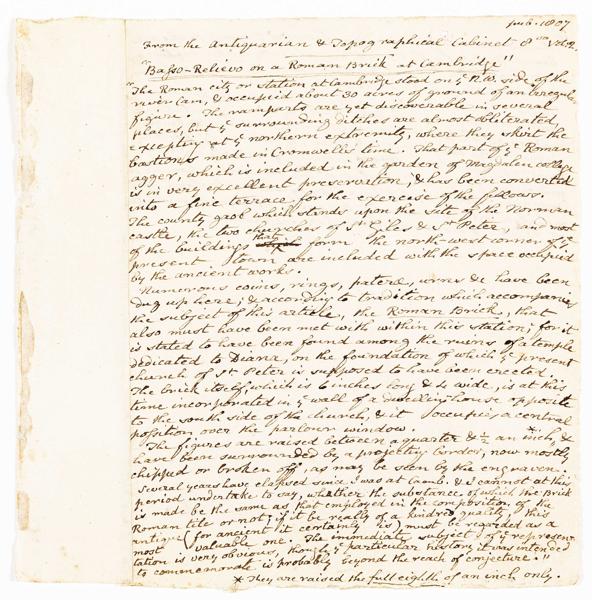 pub. 1807
From the Antiquarian & Topographical Cabinet 8vo Vol. 2.
"Basso-Relievo on a Roman Brick at Cambridge"
"The Roman city or station at Cambridge stood on ye N.W. side of the
river Cam, & occupied about 30 acres of ground of an irregular
figure. The ramparts are yet discoverable in several
places, but ye surrounding ditches are almost obliterated,
excepting at ye northern extremity, where they skirt the
bastions made in Cromwell's time. That part of ye Roman
agger, which is included in the garden of Magdalen college
is in very excellent preservation, & has been converted
into a fine terrace for the exercise of the fellows.
The county gaol which stands upon the site of the Norman
castle, the two churches of St Giles & St Peter, and most
of the buildings that form the north-west corner of ye
present town are included with the space occupied
by the ancient works.
Numerous coins, rings, patera, urns &c have been
dug up here; & according to tradition which accompanies
the subject of this article, the Roman Brick, that
also must have been met with within this station; for it
is stated to have been found among the ruins of a temple
dedicated to Diana, on the foundation of which ye present
church of St Peter is supposed to have been erected.
The brick itself, which is 6 inches long & 4 wide, is at this
time incorporated in ye wall of a dwelling house opposite
to the south side of the church, & it occupies a central
position over the parlour window.
The figures are raised between a quarter & ½ an inch,* &
have been surrounded by a projecting border, now mostly
chipped or broken off, as may be seen by the engraven.
Several years have elapsed since I was at Camb. & I cannot at this
period undertake to say, whether the substance, of which the Brick
is made be the same as that employed in the composition of the
Roman tile or not; if it be really of a kindred quality, this
antique (for ancient it certainly is) must be regarded as a
most valuable one. The immediate subject of ye represen-
tation is very obvious, though ye particular history it was intended
to commemorate is probably beyond the reach of conjecture."
* They are raised the full eighth of an inch only.